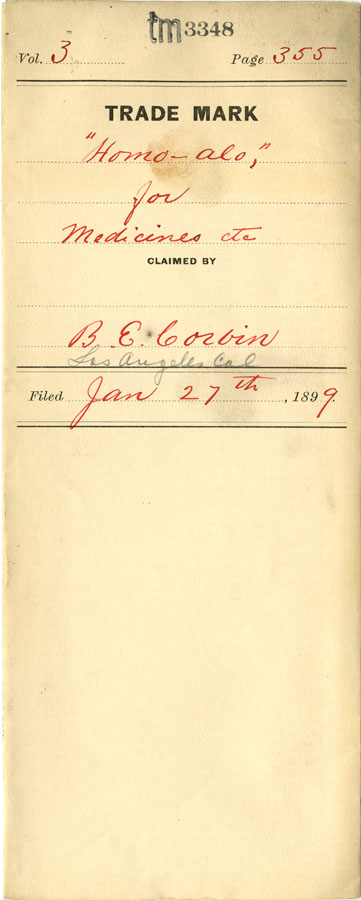 tm 3348
Vol. 3 Page 355
TRADE MARK
"Homo-alo,"
for
Medicines etc
CLAIMED BY
B E. Corbin
Los Angeles Cal
Filed Jan 27th, 1899.